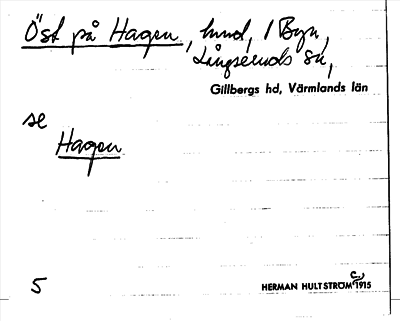 Öst på Hagen, hmd, i Byn,
Långseruds sn,
Gillbergs hd, Värmlands län
se
Hagen
5
HERMAN HULTSTRÖM c. 1915